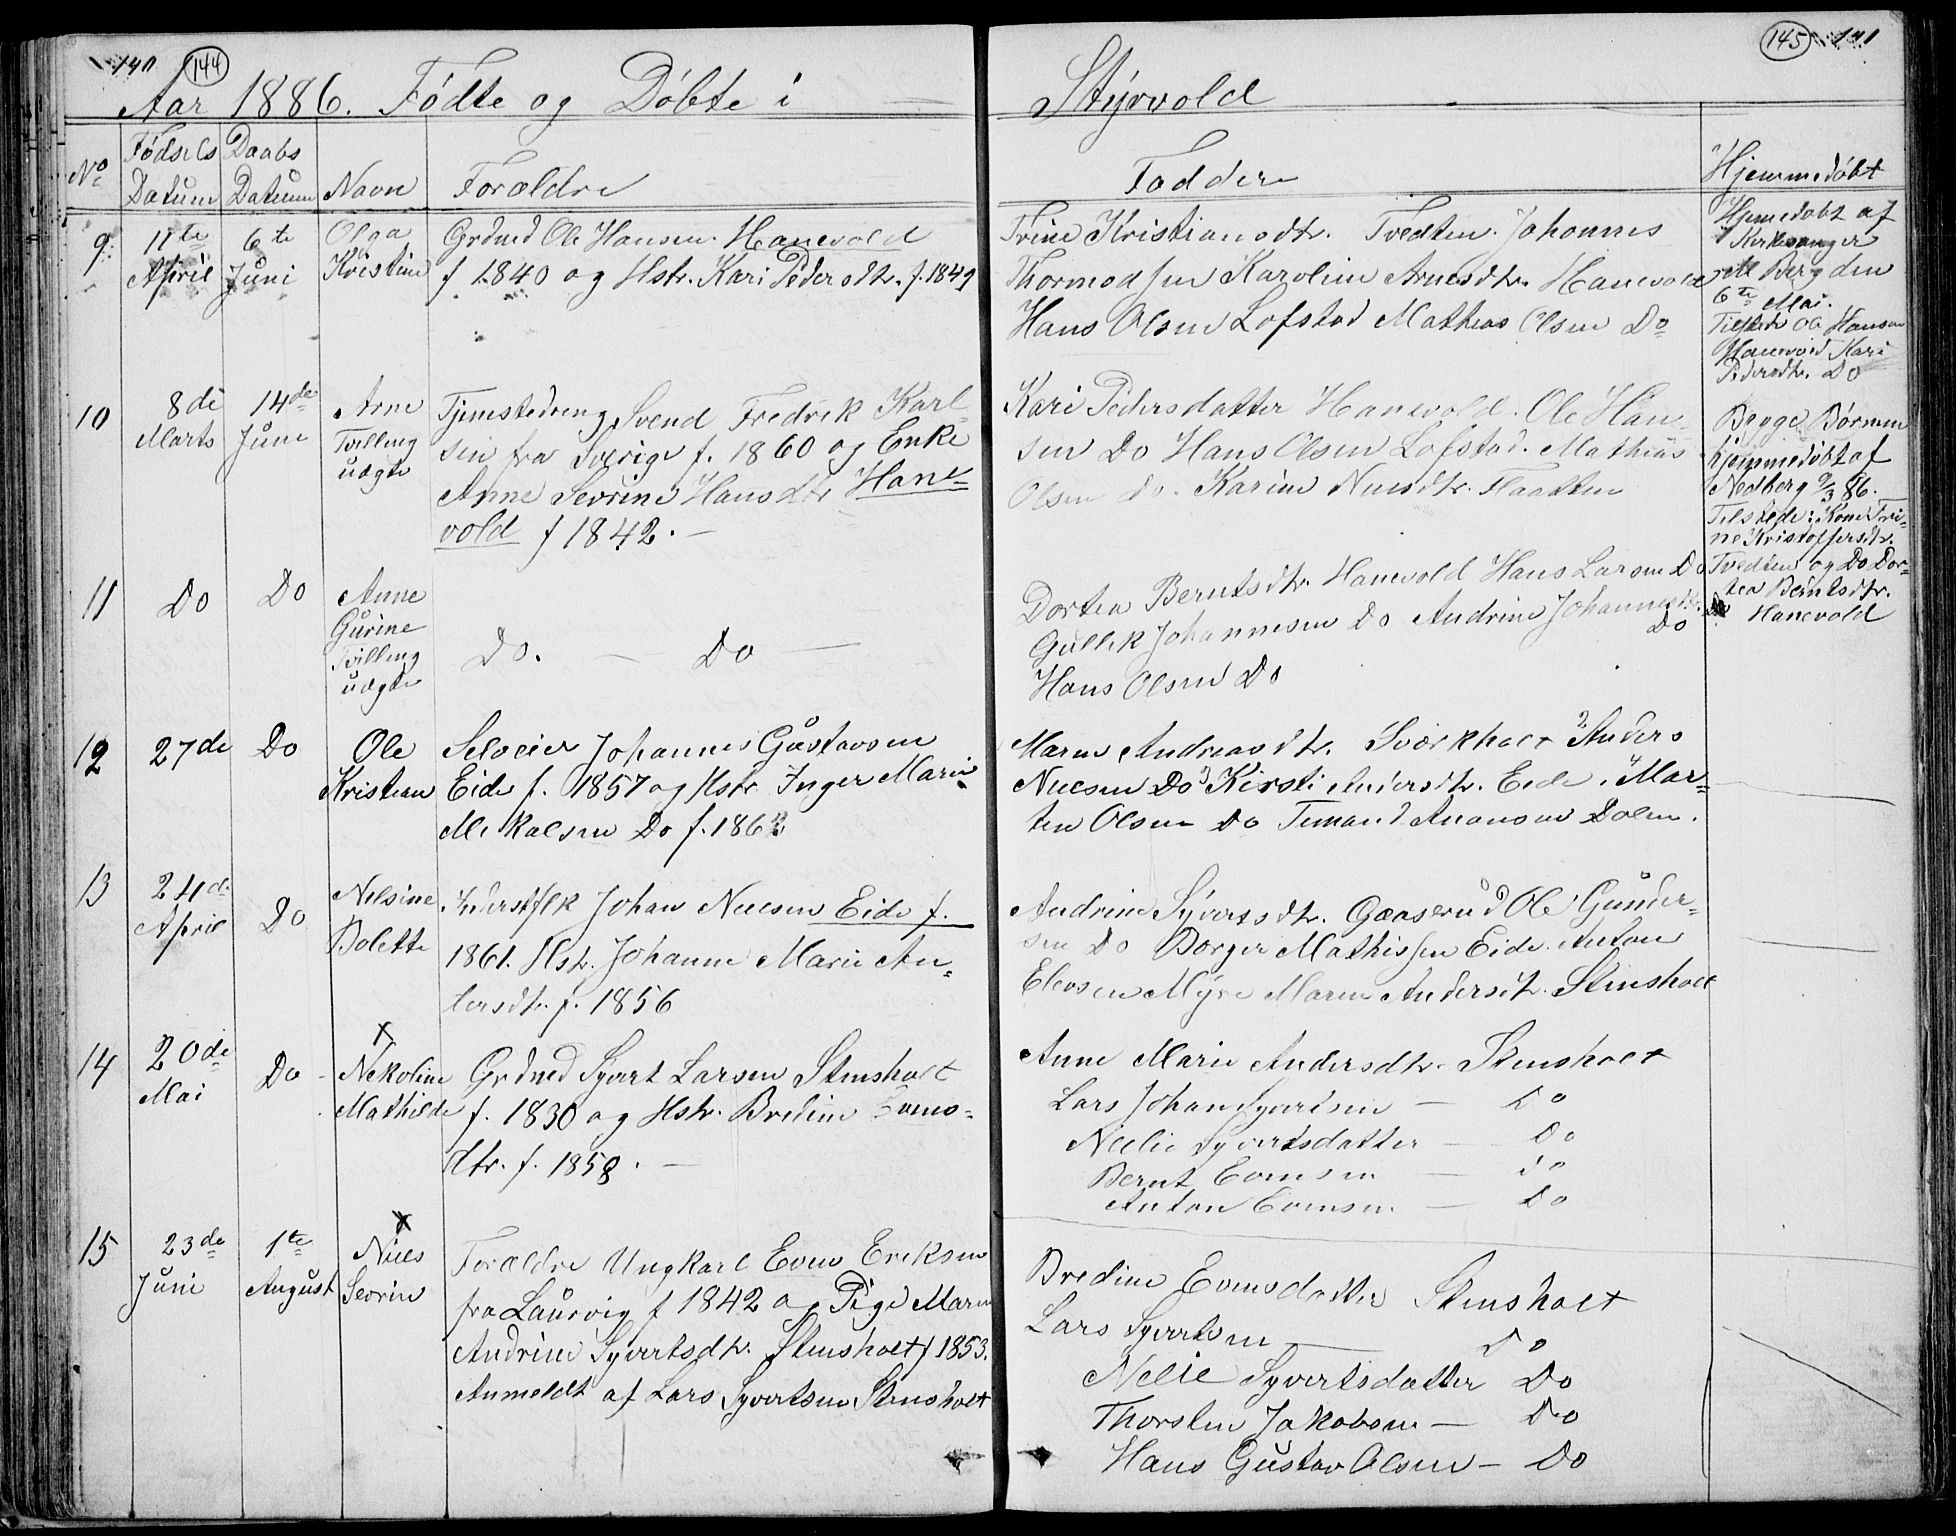 140 144
Aar 1886. Fødte og Døbte i
No Fødsels Datum Daabs Datum Navn Forældre
9. 11te April 6te Juni Olga Kristine
Grdmd Ole Hansen Hanevold
f 1840 og Hstr. Kari Pedersdtr. f. 1849
10 8de Marts 14de Juni Arne Tvilling uægte
Tjenestedreng Svend Fredrik Karl-
sen fra Sverige f. 1860 og Enke
Anne Sevrine Hansdtr Hane-
vold f 1842. —
11 Do Do Anne Gurine Tvilling uægte
Do. — Do —
12 27de Do Ole Kristian
Selveier Johannes Gustavsen
Eide f. 1857 og Hstr. Inger Marie
Mikalsen Do f. 186
13 24de April Do Nilsine Bolette
Inderst flk Johan Nielsen Eide f.
1861. Hst. Johanne Marie An-
dersdtr. f. 1856
14 20de Mai Do Nekoline Mathilde
Grdmd Syvert Larsen Stensholt
f. 1830 og Hstr. Bredine Evens-
dtr. f. 1858. —
15 23de Juni 1te August Niels Sevrin
Forældre Ungkarl Even Eriksen
fra Laurvig f 1842 og Pige Maren
Andrine Syvertsdtr. Stensholt f 1853.
Anmeldt af Lars Syvertsen Stensholt
145 141
Styrvold
Faddere Hjemmedøbt
Trine Kristiansdtr. Tvedten. Johannes
Thormodsen Karoline Arnesdtr. Hanevold
Hans Olsen Lofstad Mathias Olsen Do
Hjemedøbt af
Kirkesanger
M Berg den
6te Mai.
Tilstede Ole Hansen
Hanevold Kari
Pedersdtr. Do
Kari Pedersdatter Hanevold. Ole Han-
sen Do Hans Olsen Lofstad. Mathias
Olsen Do. Karine Nilsdtr. Flaatten
Begge Børnene
hjemmedøbt af
Nedberg 9/3 86.
Tilstede: Kone Tri-
ne Kristoffersdtr.
Tvedten og Do Dor-
tea Berntsdtr.
Hanevold
Dortea Berntsdtr. Hanevold Hans Larsen Do
Gullik Johannesen Do Andrine Johannesdtr.
Do
Hans Olsen Do
Maren Andreasdtr. Sværkholt 2 Anders
Nielsen Do 3 Kirsti Andersdtr. Eide. 4 Mar-
ten Olsen Do Dolen.
Andrine Syversdtr. Gaaserud Ole Gunder-
sen Do Borger Mathissen Eide. Anton
Elevsen Myre Maren Andersdtr. Stensholt
Anne Marie Andersdtr. Stensholt
Lars Johan Syvertsen — Do
Nilie Syvertsdatter — Do
Bernt Evensen — Do
Anton Evensen — Do
Bredine Evensdatter Stensholt
Lars Syvertsen — Do
Nelie Syvertsdatter Do
Thorsten Jakobsen — Do
Hans Gustav Olsen — Do